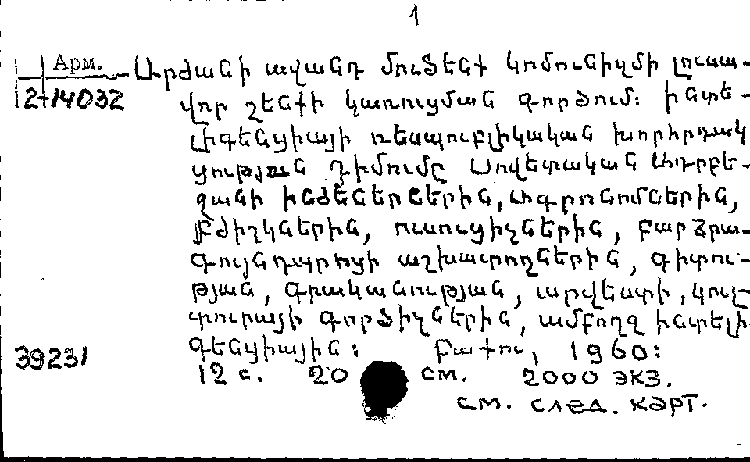 1
Арм.
2-14032
Արժանի ավանդ մուծենք կոմունիզմի լուսա-
վոր շենքի կառուցման գործում: Ինտե-
լիգենցիայի ռեսպուբլիկական խորհրդակ
ցության դիմումը Սովետական Ադրբե-
ջանի ինժեներներին, ագրոնոմներին,
բժիշկներին, ուսուցիչներին, բարձրա-
գույն դպրոցի աշխատողներին, գիտու-
թյան, գրականության, արվեստի, կուլ-
տուրայի գործիչներին, ամբողջ ինտելի
գենցիային: Բաքու, 1960:
39231
12 с. 20 см. 2000 экз.
см. след. карт.